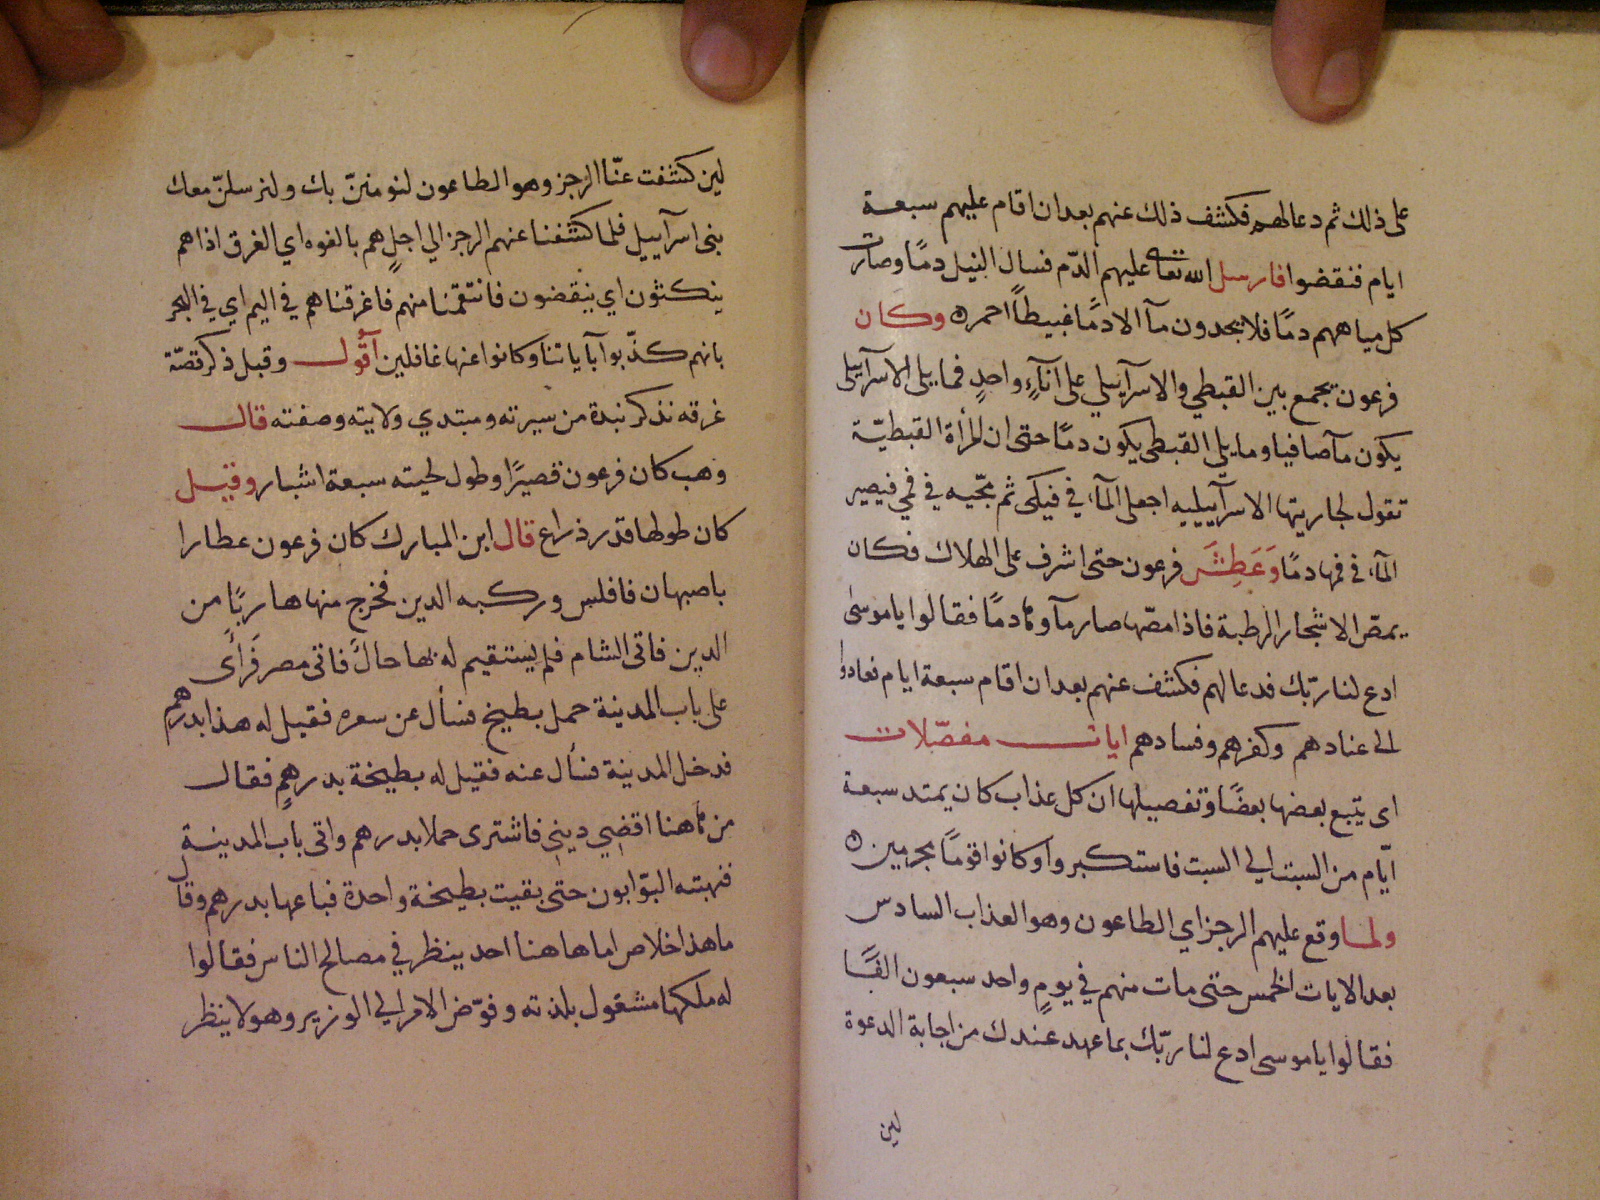 على ذلك ثم دعا لهم فكشف ذلك عنهم بعد ان اقام عليهم سبعة
ايام فنقضوا فارسل الله تعالى عليهم الدّم فسال النيل دمًا وصارت
كل مياههم دمًا فلا يجدون مآ الا دمًا غبيطًا احمر ه وكان
فرعون يجمع بين القبطي والاسرآييلي على انآءٍ واحدٍ فما يلى الاسرآييلى
يكون مآ صافيا وما يلى القبطى يكون دمًا حتى ان المرأة القبطيّة
تقول لجاريتها الاسرآييليه اجعلى المآء في فيكى ثم مجّيه في فمي فيصير
المآء في فمها دمًا وَعَطِشَ فرعون حتى اشرف على الهلاك فكان
يمصّ الاشجار الرطبة فاذا مصّها صار مآوها دمًا فقالوا يا موسى
ادع لنا ربّك فدعا لهم فكشف عنهم بعد ان اقام سبعة ايام فعادوا
الى عنادهم وكفرهم وفسادهم ايات مفصّلات
اى يتبع بعضها بعضًا وتفصيلها ان كل عذاب كان يمتد سبعة
ايّام من السبت الي السبت فاستكبروا وكانوا قومًا مجرمين ه
ولما وقع عليهم الرجز اي الطاعون وهو العذاب السادس
بعد الايات الخمس حتى مات منهم في يومٍ واحد سبعون الفًا
فقالوا يا موسى ادع لنا ربّك بما عهد عندك من اجابة الدعوة
لين
لين كشفت عنّا الرجز وهو الطاعون لنومننّ بك ولنرسلنّ معك
بنى اسرآييل فلما كشفنا عنهم الرجز الي اجلٍ هم بالغوه اي الغرق اذا هم
ينكثون اي ينقضون فانتقمنا منهم فاغرقناهم في اليم اي في البحر
بانهم كذّبوا بآياتنا وكانوا عنها غافلين أقول وقبل ذكر قصّة
غرقه نذكر نبذة من سيرته ومبتدي ولايته وصفته قال
وهب كان فرعون قصيرًا وطول لحيته سبعة اشبار وقيل
كان طولها قدر ذراع قال ابن المبارك كان فرعون عطارا
باصبهان فافلس وركبه الدين فخرج منها هاربًا من
الدين فاتى الشام فلم يستقيم له بها حال فاتى مصر فَرَأى
على باب المدينة حمل بطيخ فسأل عن سعره فقيل له هذا بدرهم
فدخل المدينة فسأل عنه فقيل له بطيخة بدرهمٍ فقال
من هاهنا اقضي ديني فاشترى حملا بدرهم واتى باب المدينة
فنهبته البوّابون حتى بقيت بطيخة واحدة فباعها بدرهم وقال
ما هذا خلاص اما هاهنا احد ينظر في مصالح الناس فقالوا
له ملكها مشغول بلذته وفوّض الامر الي الوزير وهو لا ينظر